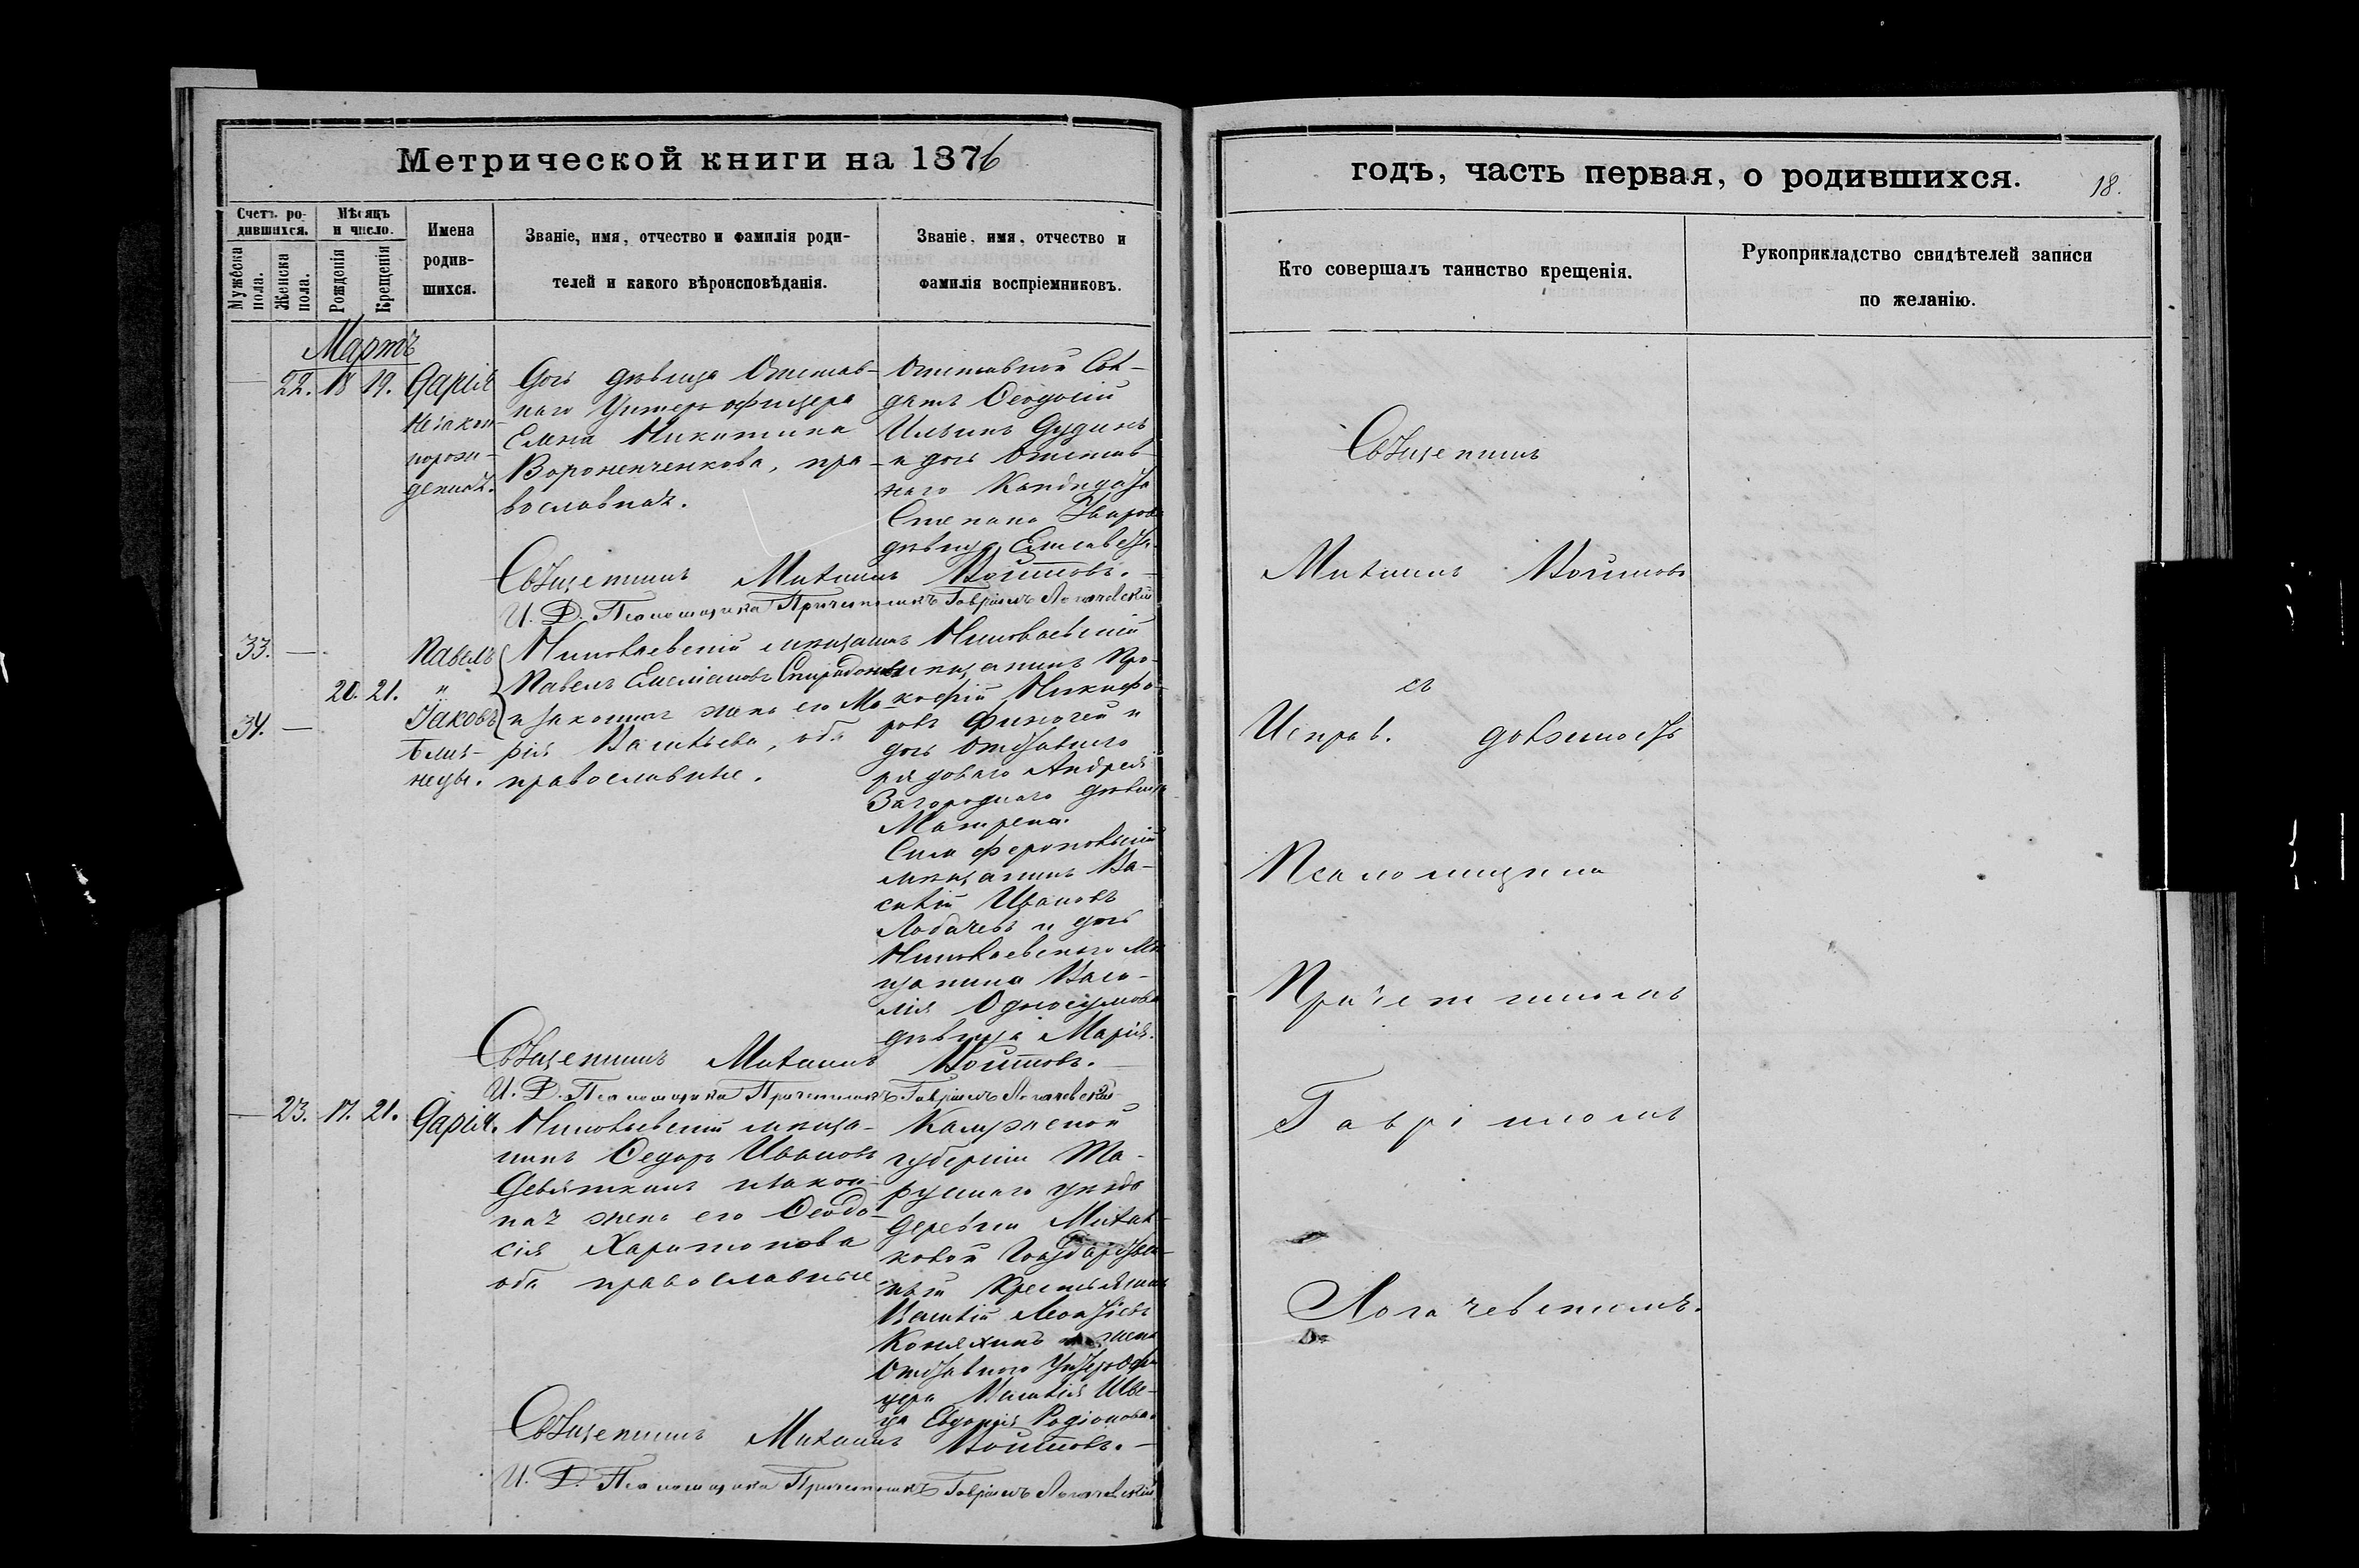 Метрической книги на 1876
Счетъ ро-
дившихся.
Мѣсяцъ
и число.
Мужеска
пола.
Женска
пола.
Рожденія
Крещенія
Имена
родив-
шихся.
Званіе, имя, отчество и фамилія роди-
телей и какого вѣроисповѣданія.
Званіе, имя, отчество и
фамилія воспріемниковъ.
Мартъ
22. 18 19. Дарія
Незакон-
норож-
денная.
Дочь дѣвица Отстав-
наго Унтеръ-офицера
Елена Никитина
Воронченкова, пра-
вославная.
Отставной Сол-
датъ Ѳеодосій
Ильинъ Дудинъ
и дочь Отстав-
наго Кандидата
Степана Уварова
дѣвица Елисавета.
Священникъ Михаилъ Войтовъ.
И. Д. Псаломщика Причетникъ Гавріилъ Логачевскій
33. —
34. —
20. 21.
Павелъ
и
Іаковъ
близ-
нецы.
Николаевскій мѣщанинъ
Павелъ Емеліановъ Спиридоновъ
и законная жена его Ма-
рія Васильева, оба
православные.
Николаевскій
мѣщанинъ Про-
кофій Никифо-
ровъ Финогей и
дочь Отставнаго
рядоваго Андрея
Загороднаго дѣвица
Матрена.
Симферопольскій
мѣщанинъ Ва-
силій Ивановъ
Лобачевъ и дочь
Николаевскаго мѣ-
щанина Васи-
лія Односумова
дѣвица Марія.
Священникъ Михаилъ Войтовъ.
И. Д. Псаломщика Причетникъ Гавріилъ Логачевскій
23. 17. 21. Дарія.
Николаевскій мѣща-
нинъ Ѳедоръ Ивановъ
Девяткинъ и закон-
ная жена его Ѳеодо-
сія Харитонова
оба православные
Калужской
губерніи Та-
рускаго уѣзда
деревни
Государствен-
ный Крестьянинъ
Василій Леонтіевъ
Коняхинъ и жена
Отставного Унтеръ Офи-
цера Василія Шве-
ца Евдокія Родіонова.
Священникъ Михаилъ Войтовъ.
И. Д. Псаломщика Причетникъ Гавріилъ Логачевскій
годъ, часть первая, о родившихся.
18.
Кто совершалъ таинство крещенія.
Рукоприкладство свидѣтелей записи
по желанію.
Священникъ
Михаилъ Войтовъ
съ
Исправ. должность
Псаломщика
Причетникомъ
Гавріиломъ
Логачевскимъ.